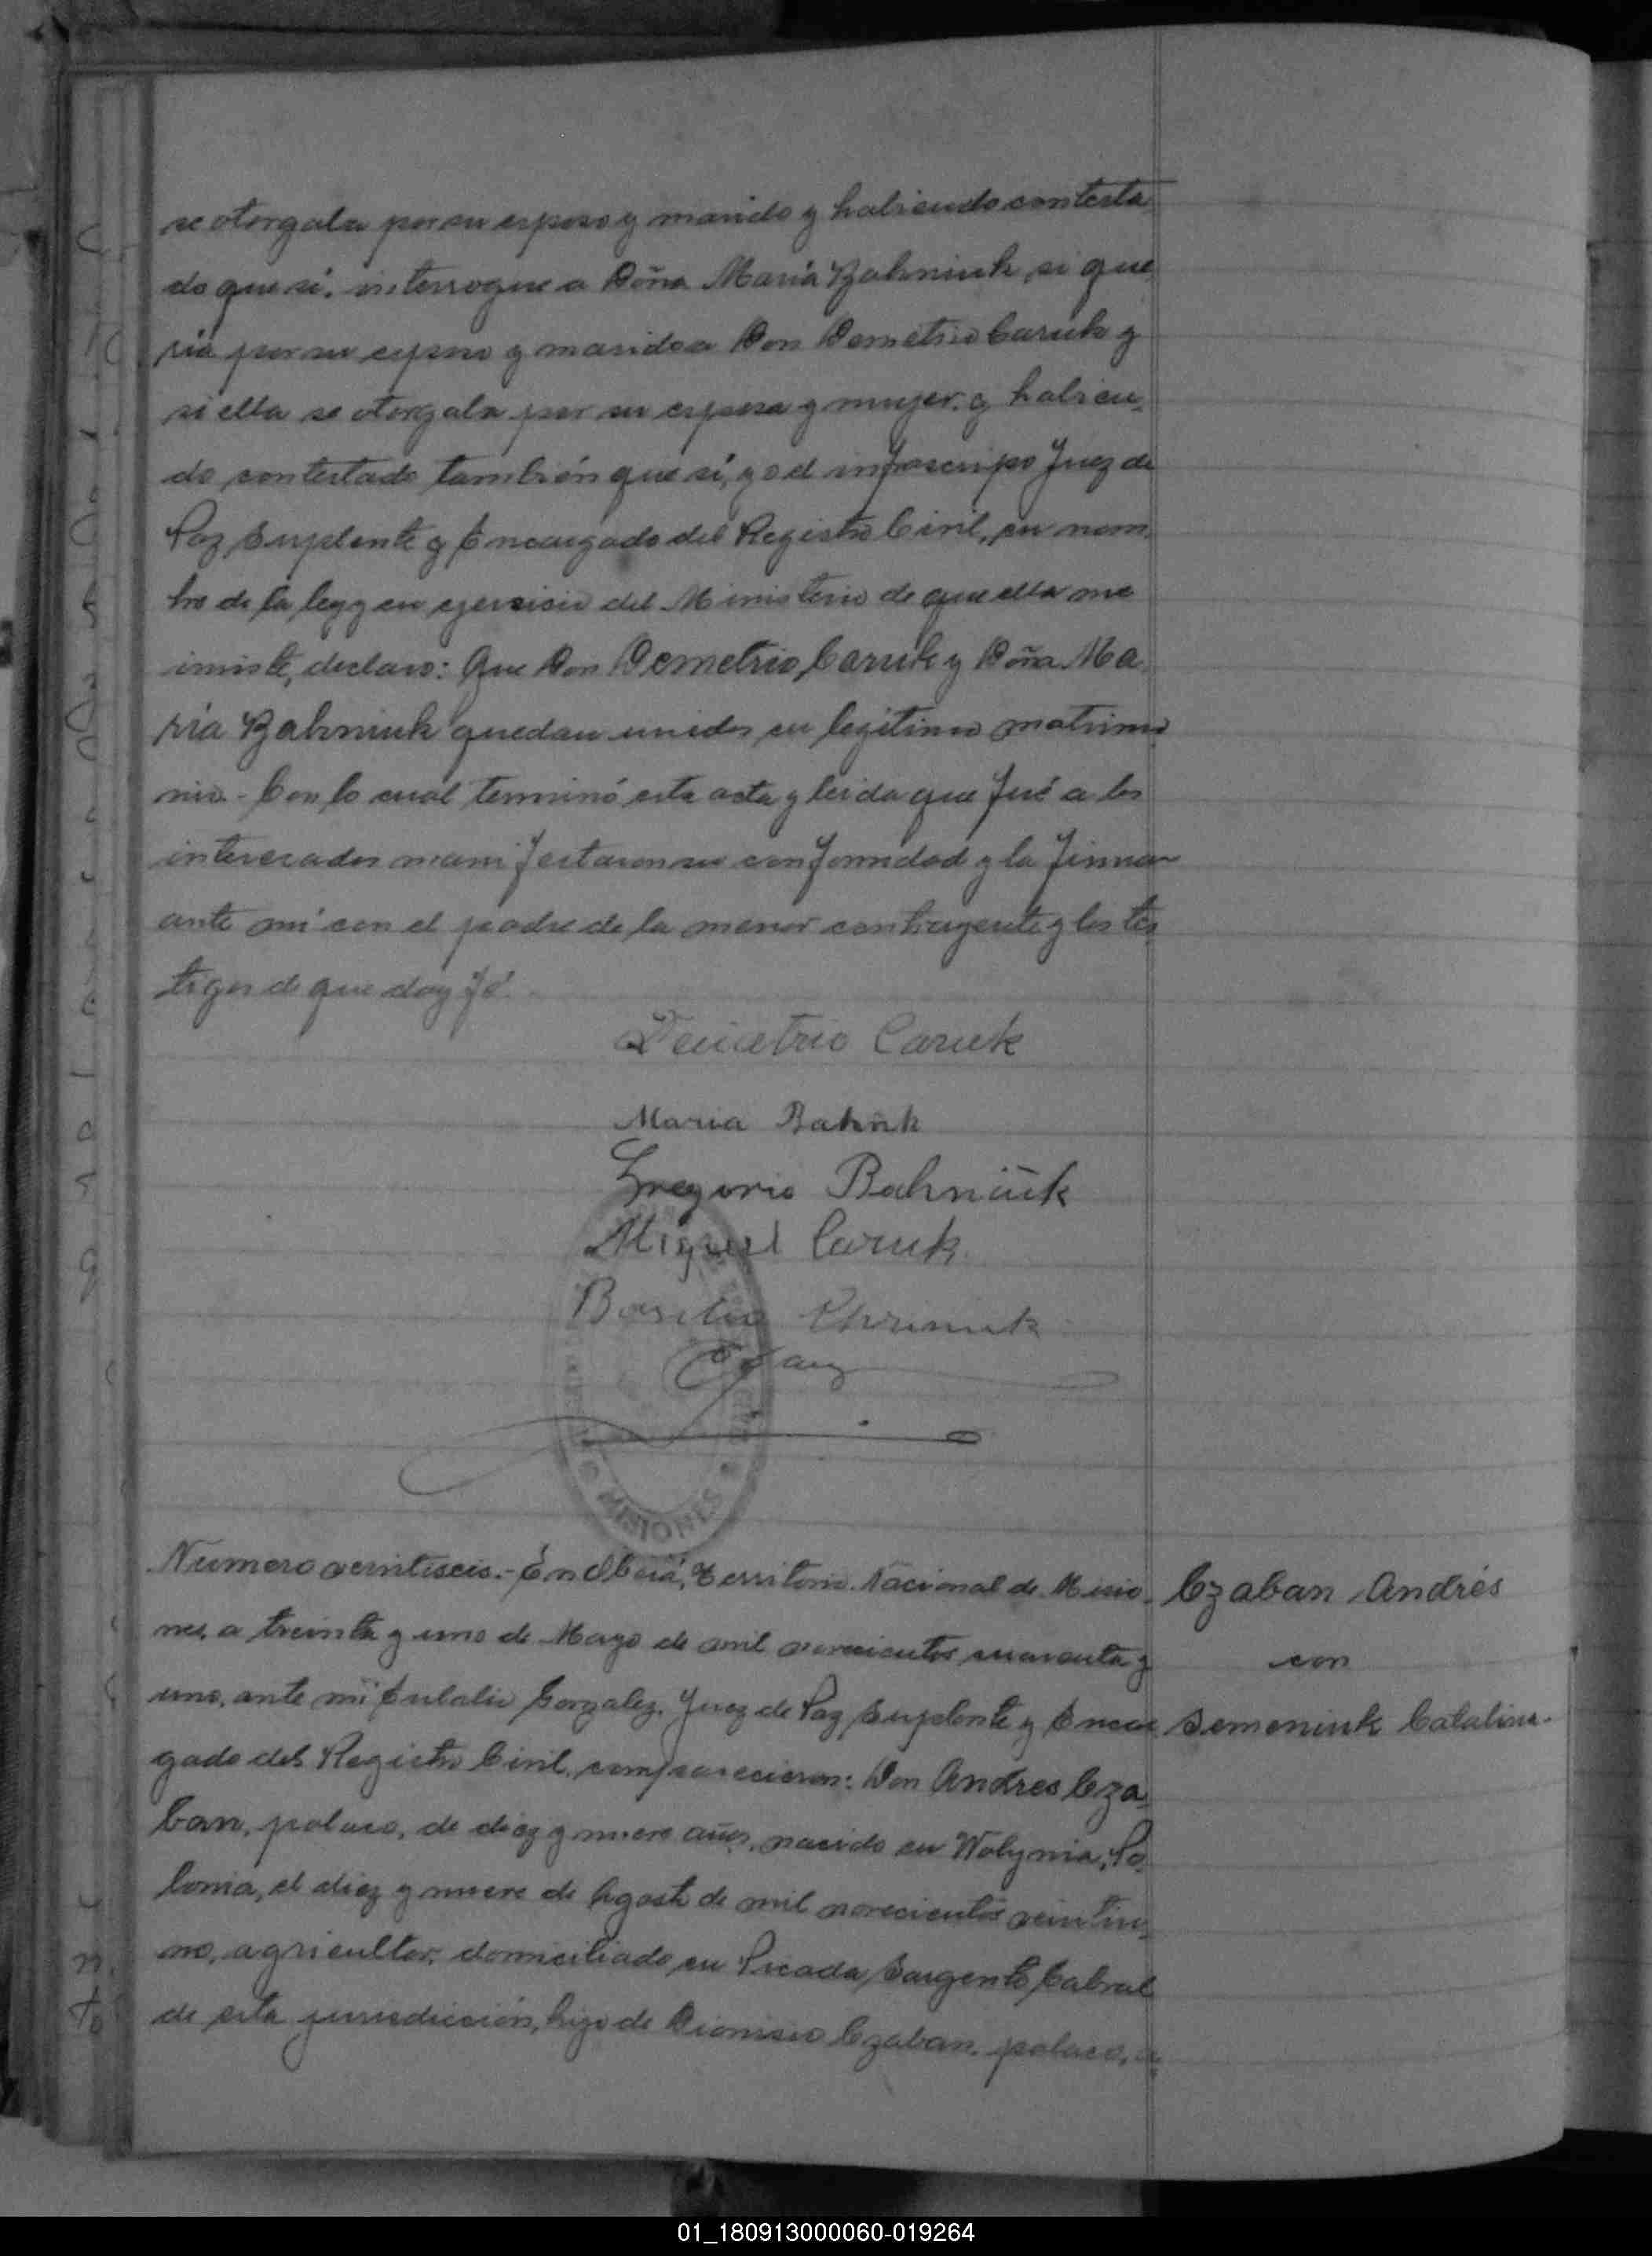 se otorgaba por su esposo y marido y habiendo contesta
do que sí, interrogue a Doña María Bahniuk si que
ría por su esposo y marido a Don Demetrio Caruk y
si ella se otorgaba por su esposa y mujer, y habien_
do contestado también que sí, yo el infrascripo Juez de
Paz Suplente y Encargado del Registro Civil, en nom_
bre de la ley y en ejercisio del Ministerio de que ella me
inviste, declaro: Que Don Demetrio Caruk y Doña Ma_
ría Bahniuk quedan unidos en legítimo matrimo
nio.- Con lo cual terminó esta acta y leida que fué a los
interesados manifestaron su conformidad y la firman
ante mí con el padre de la menor contrayente y los tes_
tigos de que doy fé.-
Demetrio Caruk
Maria Bahnik
Gregorio Bahniuk
Miguel Caruk
Basilio
MISIONES
Numero veintiseis.- En Oberá, Territorio Nacional de Misio_
nes, a treinta y uno de Mayo de mil novecientos cuarenta y
uno, ante mí Eulalio Gonzalez, Juez de Paz Suplente y Encar
gado del Registro Civil, comparecieron: Don Andres Cza_
ban, polaco, de diez y nueve años, nacido en Wolynia, Po_
lonia, el diez y nueve de Agosto de mil novecientos veintiu_
no, agricultor, domiciliado en Picada Sargento Cabral
de esta jurisdicción, hijo de Dionisio Czaban, polaco, a_
Czaban Andrés
con
Semeniuk Catalina.-
01_180913000060-019264